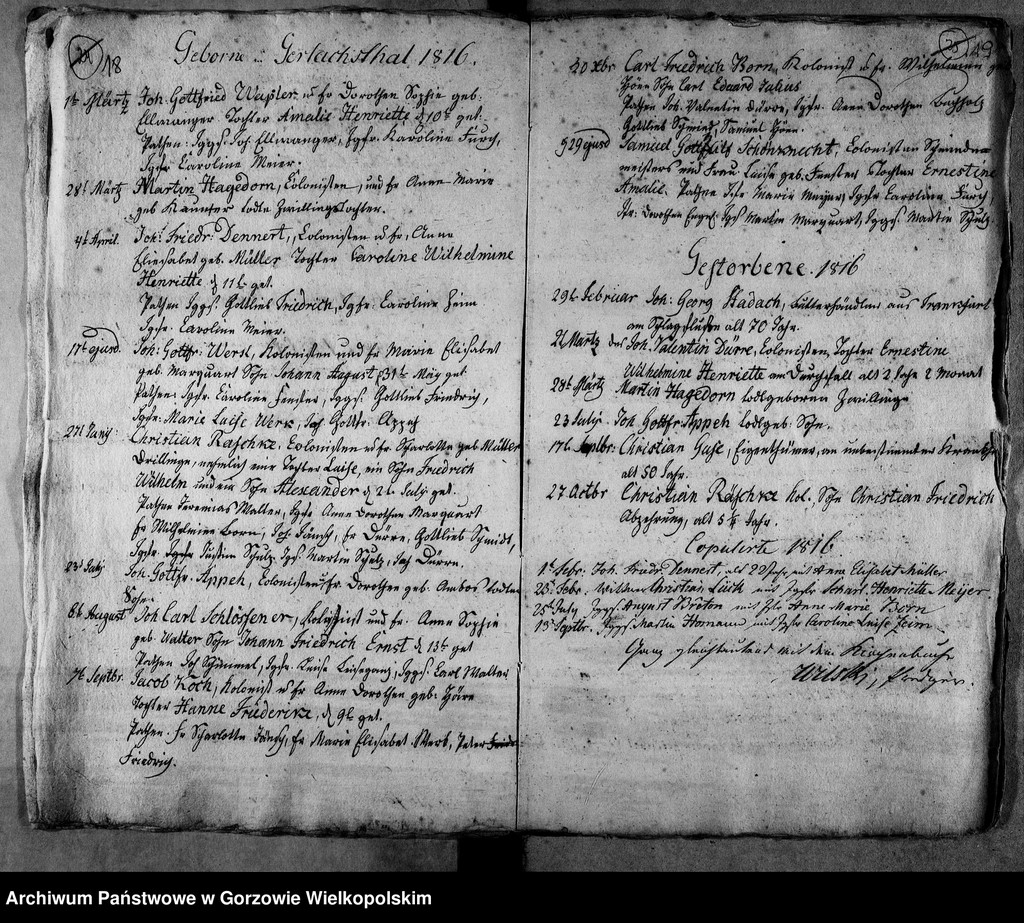 18
Geborne in Gerlachsthal 1816.
1t Märtz Joh. Gottfried Wapler u Fr Dorothea Sophie geb.
Ellmanger Tochter Amalie Henriette d 10t get.
Pathen: Jggs. Joh. Ellmanger, Jgfr. Karoline Furch,
Jgfr. Caroline Meier.
28t Märtz Martin Hagedorn, Colonisten, und Fr Anne Marie
geb Kaunter todte Zwillingstochter.
4t April. Joh. Friedr. Dennert, Colonisten u Fr. Anne
Eliesabet geb. Müller Tochter Caroline Wilhelmine
Henriette d 11t get.
Pathen Jggs. Gottlieb Friedrich, Jgfr. Caroline Heim
Jgfr. Caroline Meier.
17t ejusd. Joh. Gottfr. Werk, Kolonisten und Fr Marie Elisabet
geb. Marquart Sohn Johann August d 31t May get
Pathen: Jgfr. Caroline Fenster, Jggs. Gottlieb Friedrich,
Jgfr. Marie Luise Werk, Joh. Gottfr. Appeh
27t Juny Christian Raschke, Colonisten u Fr. Scharlotte geb. Müller
Drillinge, nehmlich eine Tochter Luise, ein Sohn Friedrich
Wilhelm und ein Sohn Alexander d 2t July get.
Pathen Jeremias Walter, Jgfr Anne Dorothea Marquart
Fr Wilhelmine Born, Joh. Fr Dürre, Gottlieb Schmidt,
Jgfr. Justine Schulz, Jgs. Martin Schulz, Joh Dürre.
23t July Joh. Gottfr. Appeh, Colonisten u Fr. Dorothea geb. Ambos todter
Sohn.
8t August Joh Carl Schlössener, Kolonist und Fr. Anne Sophie
geb. Walter Sohn Johann Friedrich Ernst d 13t get
Pathen Joh Schimmel, Jgfr. Luise Jggs. Carl Walter
7t Septbr. Jacob Koch, Kolonist u Fr Anne Dorothea geb. Höere
Tochter Hanne Friederike, d 9t get.
Pathen. Fr Scharlotte Fr Marie Elisabet Werk, Peter
Friedrich.
19
20 Xbr Carl Friedrich Born, Kolonist u Fr. Wilhelmine
Höere Sohn Carl Eduard Julius
Pathen Joh. Valentin Dürre, Jgfr. Anne Dorothea Buchholz
Gottlieb Schmidt, Samuel Höere.
d 29 ejusd Samuel Gottfrilf Schönknecht, Colonist u Schneider
meisters und Frau Luise geb. Fenster Tochter Ernestine
Amalie. Pathen Marie Meyer, Jgfr Caroline Furch
Fr. Dorothea Engel Jgs Martin Marquart, Jggs. Martin Schulz.
Gestorbene. 1816
29t Februar Joh. Georg Hadach, aus Frankfurt
am Schlagflusse alt 70 Jahr.
21 Martz des Joh. Valentin Dürre, Colonisten, Tochter Ernestine
Wilhelmine Henriette am Durchfall alt 2 Jahr 2 Monat
28t Märtz Martin Hagedorn todtgeborene Zwillinge
23 July Joh Gottfr. Appeh todtgeb. Sohn.
17t Septbr. Christian Guse, Eigenthümer, an unbestimmter Krankheit
alt 50 Jahr.
27 Octbr Christian Räschke kol. Sohn Christian Friedrich
Abzehrung, alt 5 1/4 Jahr.
Copulirte 1816
1t Febr. Joh. Friedr. Dennert, alt 22 Jahr, mit Anna Elisabet Müller
23t Febr. Wilhelm Christian Lück mit Jgfr Scharl. Henriette Meijer
25t July Jggs. August Bröten mit Jgfr Anne Marie Born
13t Septbr. Jggs Martin Homann mit Jgfr Karoline Luise Heim
Ganz gleichlautend mit dem Kirchenbuche
Wilski, Prediger.
Archiwum Państwowe w Gorzowie Wielkopolskim